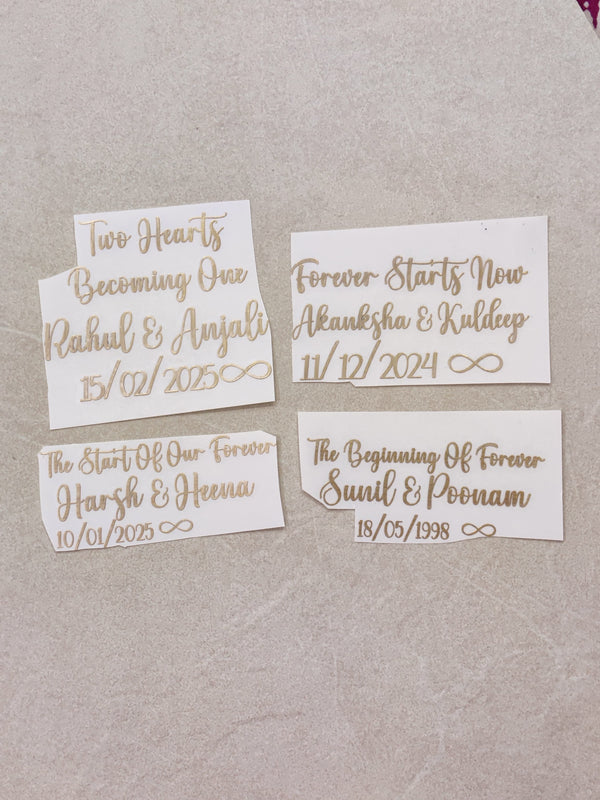 Two Hearts
Becoming One
Rahul & Anjali
15/02/2025∞
Forever Starts Now
Akanksha & Kuldeep
11/12/2024 ∞
The Start Of Our Forever
Harsh & Heena
10/01/2025 ∞
The Beginning Of Forever
Sunil & Poonam
18/05/1998 ∞